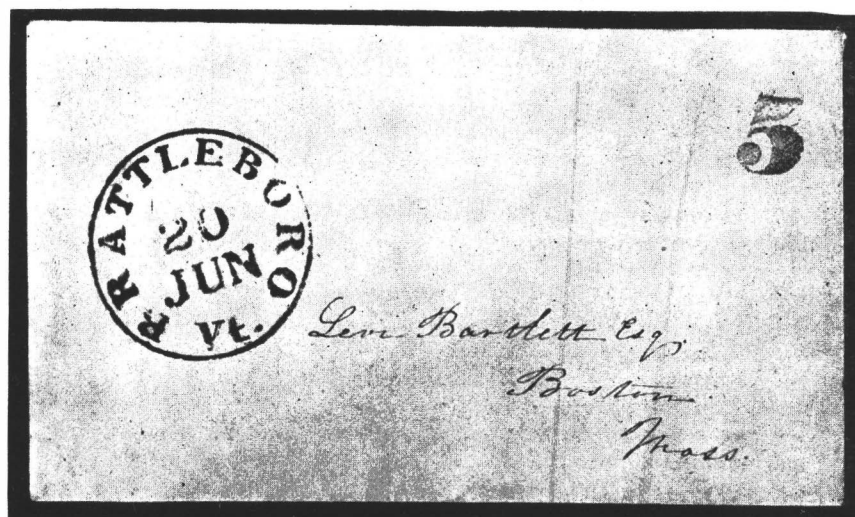 5
BRATTLEBORO
20
JUN
Vt.
Levi Bartlett Esq.
Boston
Mass.